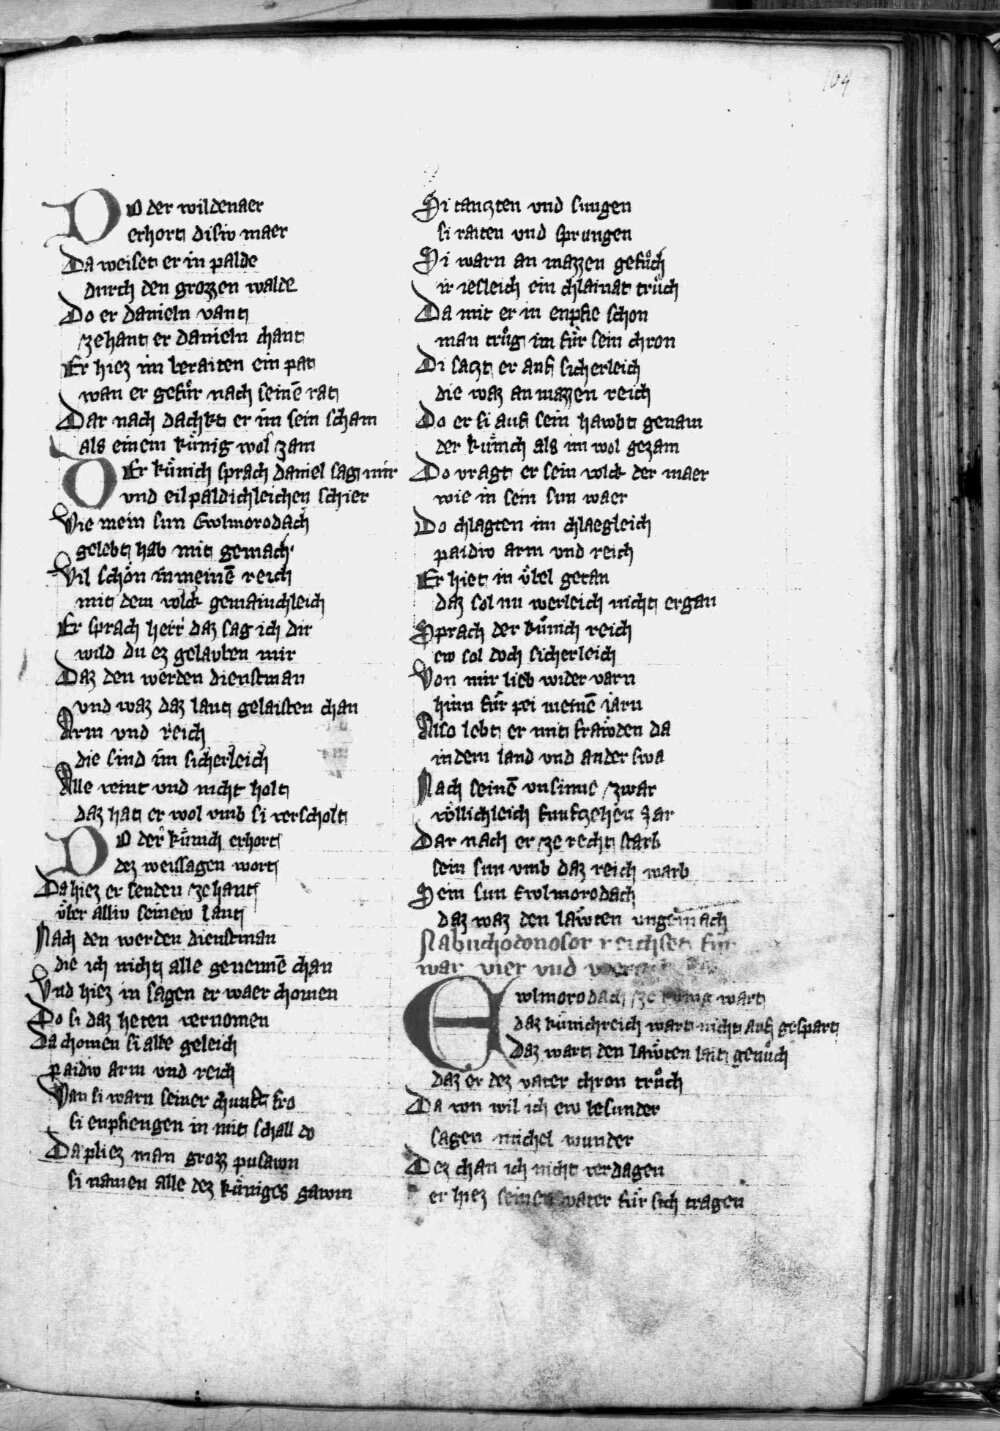 104
DO der wildenaer
erhort disiv maer
Da weiset er in palde
durch den grozzen walde
Do er danieln vant
zehant er danieln chant
Er hiez im beraiten ein pat
wan er gefůr nach seinē rat
Dar nach dacht er im sein scham
als einem kůnig wol zam
DEr kůnich sprach daniel sag mir
vnd eil paldichleichen schier
Wie mein sun Ewlmorodach
gelebt hab mit gemach
Vil schôn in meinē reich
mit dem volck gemainchleich
Er sprach herr daz sag ich dir
wild du ez gelauben mir
Daz den werden dienstman
vnd waz daz lant gelaisten chan
Arm vnd reich
die sind im sicherleich
Alle veint vnd nicht holt
daz hat er wol vmb si verscholt
DO der kůnich erhort
dez weissagen wort
Da hiez er senden zehant
vͤber alliv seinew lant
Nach den werden dienstman
die ich nicht alle genennē chan
Vnd hiez in sagen er waer chomen
Do si daz heten vernomen
Da chomen si alle geleich
paidiv arm vnd reich
Wan si warn seiner chunft fro
si enphiengen in mit schall do
Da pliez man grozz pusawn
si namen alle dez kůniges gawm
Si tanczten vnd sungen
si raiten vnd sprungen
Si warn an mazzen gefůch
ir iesleich ein chlainat trůch
Da mit er in enpfie schon
man trůg im fůr sein chron
Di sazt er auf sicherleich
die waz an mazzen reich
Do er si auf sein hawbt genam
der kůnich als im wol gezam
Do vragt er sein volck der maer
wie in sein sun waer
Do chlagten im chlaegleich
paidiv arm vnd reich
Er hiet in vͤbel getan
daz sol nu werleich nicht ergan
Sprach der kůnich reich
ew sol doch sicherleich
Von mir lieb wider varn
hinn fůr pei meinē iarn
Also lebt er mit frawden da
in dem land vnd ander swa
Nach seinē vnsinne zwar
vôllichleich funfczehen Jar
Dar nach er ze recht starb
sein sun vmb daz reich warb
Sein sun Ewlmorodach
daz waz den lawten vngemach
Nabuchodonosor reichset fur
war vier vnd
Ewlmorodach ze kůnig wart
daz kůnichreich wart nicht auf gespart
Daz wart den lawten lait genůch
daz er dez vater chron trůch
Da von wil ich ew besunder
sagen michel wunder
Dez chan ich nicht verdagen
er hiez seinen vater fůr sich tragen